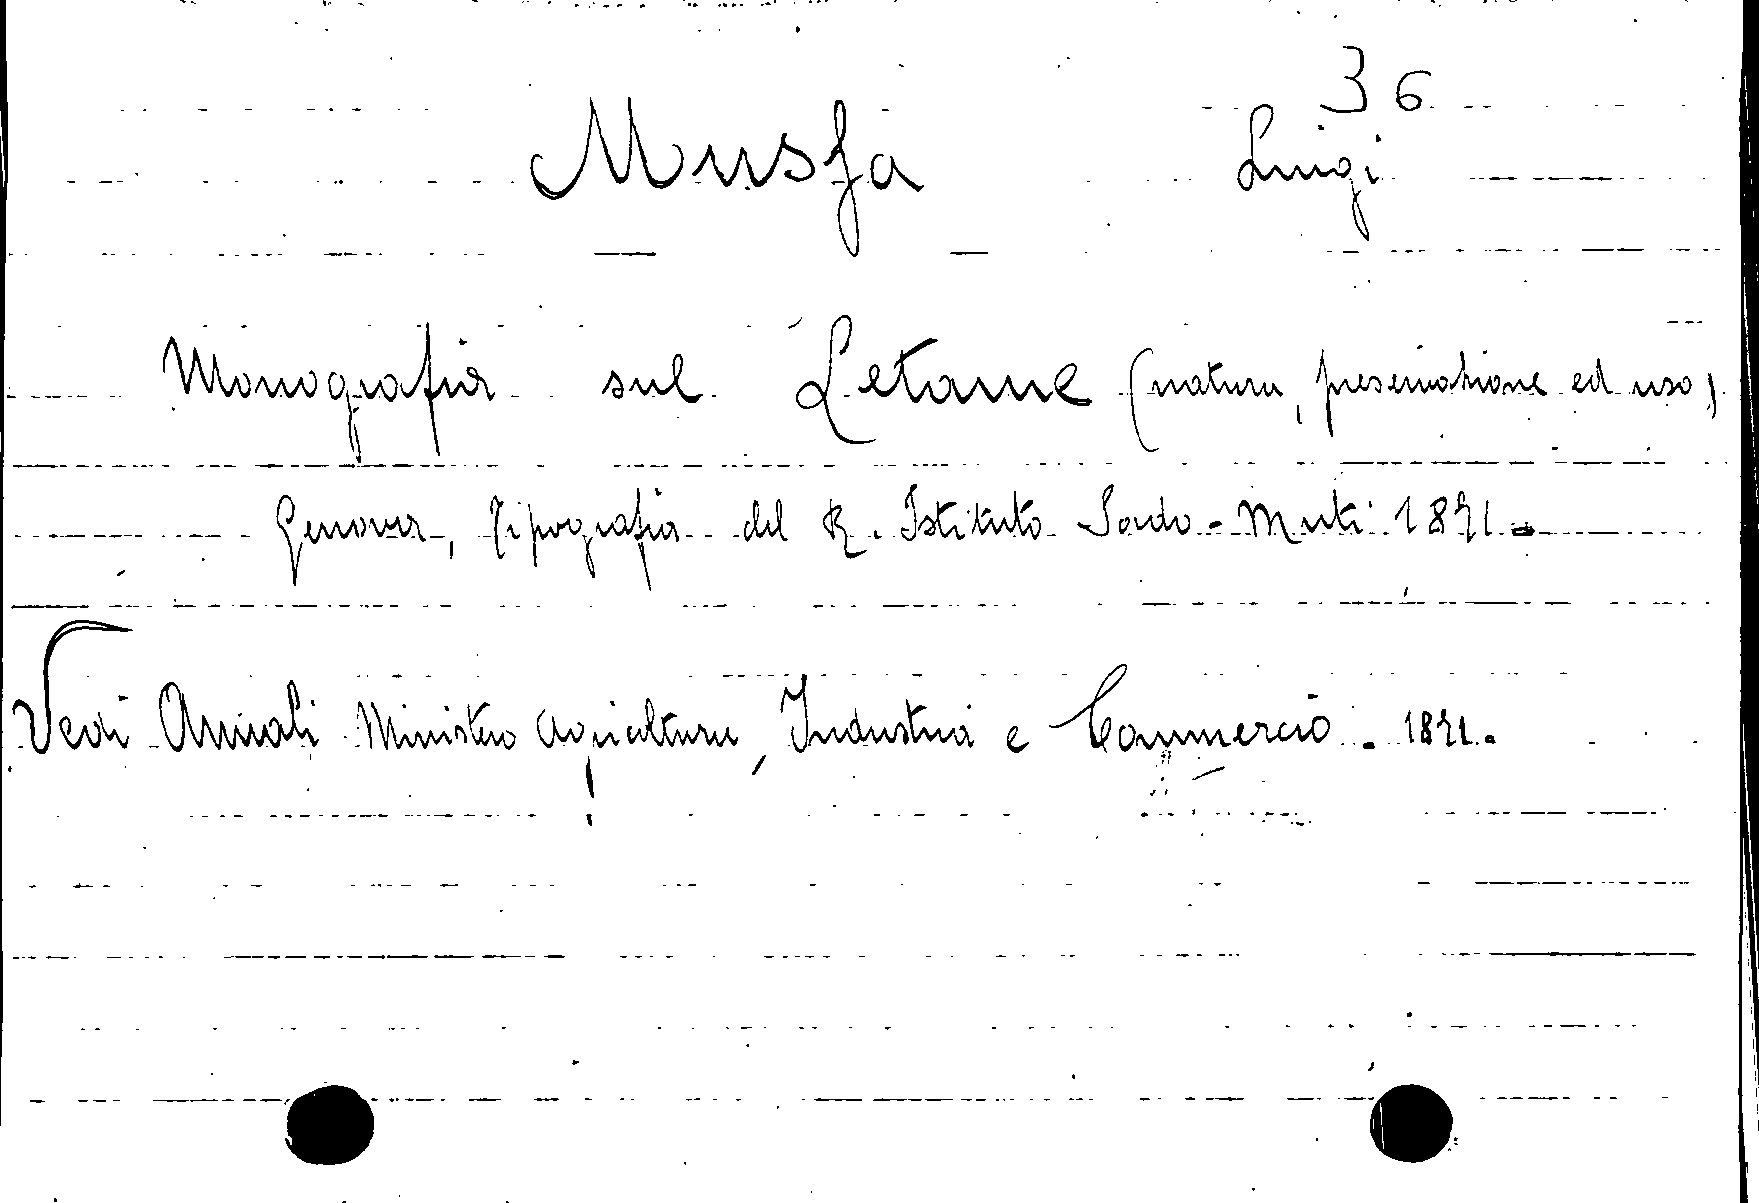 36
Musfa Luigi
Monografia sul Letame (natura, preservazione ed uso)
Genova, Tipografia del R. Istituto Sordo-Muti 1871.
Vedi Annali Ministero Agricoltura, Industria e Commercio. 1871.